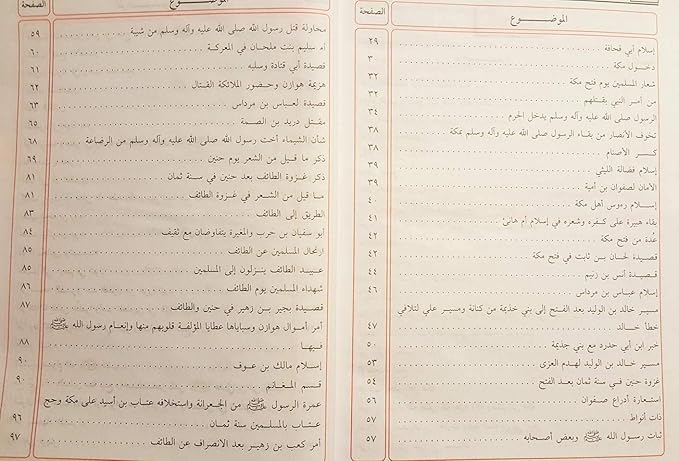 الموضــــوع
الصفحة
إسلام أبي قحافة ٢٩
دخـول مكة ٣٠
شعار المسلمين يوم فتح مكة ٣٢
من أمر النبي بقتلهم ٣٢
الرسول صلى الله عليه وآله وسلم يدخل الحرم ٣٤
تخوف الأنصار من بقاء الرسول صلى الله عليه وآله وسلم بمكة ٣٨
كسر الأصنام ٣٨
إسلام فضالة الليثي ٣٩
الأمان لصفوان بن أمية ٣٩
إسلام رءوس أهل مكة ٤٠
بقاء هبيرة على كفره وشعره في إسلام أم هانئ ٤١
عدة من فتح مكة ٤٢
قصيدة لحسان بن ثابت في فتح مكة ٤٢
قصيدة أنس بن زنيم ٤٤
إسلام عباس بن مرداس ٤٦
مسير خالد بن الوليد بعد الفتح إلى بني خذيمة من كنانة ومسير علي لتلافي
خطأ خالد ٤٧
خبر ابن أبي حدرد مع بني جذيمة ٥٠
مسير خالد بن الوليد لهدم العزى ٥٣
غزوة حنين في سنة ثمان بعد الفتح ٥٤
استعارة أدراع صفوان ٥٦
ذات أنواط ٥٧
ثبات رسول الله ﷺ وبعض أصحابه ٥٧
الموضــــوع
الصفحة
محاولة قتل رسول الله صلى الله عليه وآله وسلم من شيبة ٥٩
أم سليم بنت ملحان في المعركة ٦٠
قصيدة أبي قتادة وسلبه ٦١
هزيمة هوازن وحضور الملائكة القتال ٦٢
قصيدة لعباس بن مرداس ٦٣
مقتل دريد بن الصمة ٦٥
شأن الشيماء أخت رسول الله صلى الله عليه وآله وسلم من الرضاعة ٦٨
ذكر ما قيل من الشعر يوم حنين ٦٩
ذكر غزوة الطائف بعد حنين في سنة ثمان ٨١
ما قيل من الشعر في غزوة الطائف ٨١
الطريق إلى الطائف ٨٣
أبو سفيان بن حرب والمغيرة يتفاوضان مع ثقيف ٨٤
ارتحال المسلمين عن الطائف ٨٥
عبيد الطائف ينزلون إلى المسلمين ٨٥
شهداء المسلمين يوم الطائف ٨٦
قصيدة بجير بن زهير في حنين والطائف ٨٧
أمر أموال هوازن وسباياها عطايا المؤلفة قلوبهم منها وإنعام رسول الله ﷺ
فيها ٨٨
إسلام مالك بن عوف ٩٠
قسم المغانم ٩٠
عمرة الرسول ﷺ من الجعرانة واستخلافه عتاب بن أسيد على مكة وحج
عتاب بالمسلمين سنة ثمان ٩٦
أمر كعب بن زهير بعد الانصراف عن الطائف ٩٧